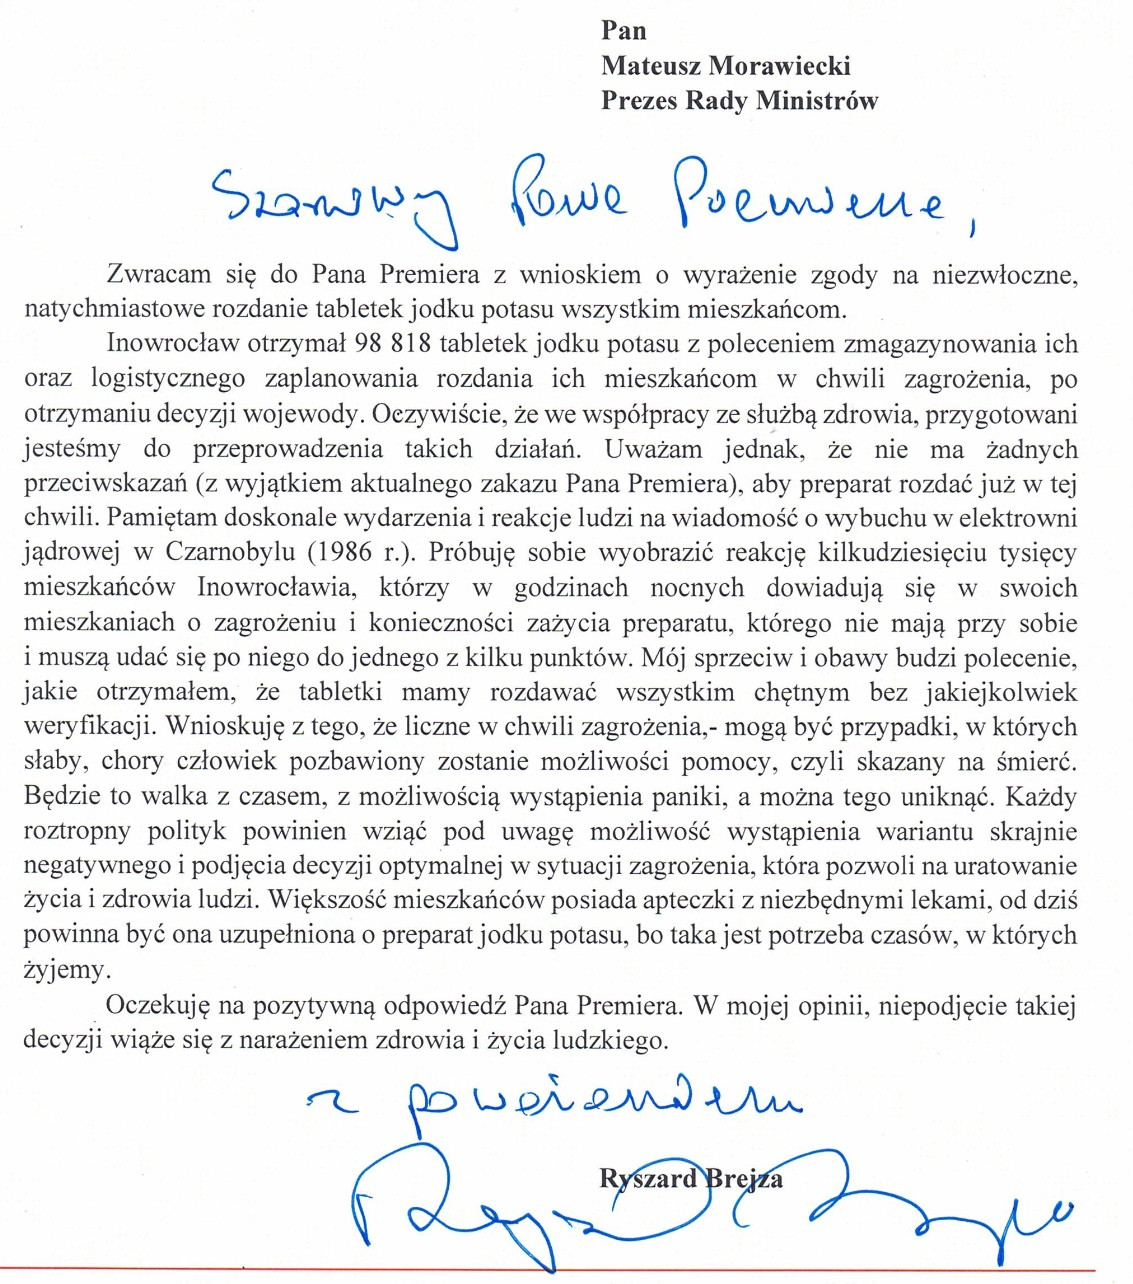 Pan
Mateusz Morawiecki
Prezes Rady Ministrów
Szanowny Panie Premierze,
Zwracam się do Pana Premiera z wnioskiem o wyrażenie zgody na niezwłoczne,
natychmiastowe rozdanie tabletek jodku potasu wszystkim mieszkańcom.
Inowrocław otrzymał 98 818 tabletek jodku potasu z poleceniem zmagazynowania ich
oraz logistycznego zaplanowania rozdania ich mieszkańcom w chwili zagrożenia, po
otrzymaniu decyzji wojewody. Oczywiście, że we współpracy ze służbą zdrowia, przygotowani
jesteśmy do przeprowadzenia takich działań. Uważam jednak, że nie ma żadnych
przeciwskazań (z wyjątkiem aktualnego zakazu Pana Premiera), aby preparat rozdać już w tej
chwili. Pamiętam doskonale wydarzenia i reakcje ludzi na wiadomość o wybuchu w elektrowni
jądrowej w Czarnobylu (1986 r.). Próbuję sobie wyobrazić reakcję kilkudziesięciu tysięcy
mieszkańców Inowrocławia, którzy w godzinach nocnych dowiadują się w swoich
mieszkaniach o zagrożeniu i konieczności zażycia preparatu, którego nie mają przy sobie
i muszą udać się po niego do jednego z kilku punktów. Mój sprzeciw i obawy budzi polecenie,
jakie otrzymałem, że tabletki mamy rozdawać wszystkim chętnym bez jakiejkolwiek
weryfikacji. Wnioskuję z tego, że liczne w chwili zagrożenia,- mogą być przypadki, w których
słaby, chory człowiek pozbawiony zostanie możliwości pomocy, czyli skazany na śmierć.
Będzie to walka z czasem, z możliwością wystąpienia paniki, a można tego uniknąć. Każdy
roztropny polityk powinien wziąć pod uwagę możliwość wystąpienia wariantu skrajnie
negatywnego i podjęcia decyzji optymalnej w sytuacji zagrożenia, która pozwoli na uratowanie
życia i zdrowia ludzi. Większość mieszkańców posiada apteczki z niezbędnymi lekami, od dziś
powinna być ona uzupełniona o preparat jodku potasu, bo taka jest potrzeba czasów, w których
żyjemy.
Oczekuję na pozytywną odpowiedź Pana Premiera. W mojej opinii, niepodjęcie takiej
decyzji wiąże się z narażeniem zdrowia i życia ludzkiego.
z poważaniem
Ryszard Brejza
Ryszard Brejza